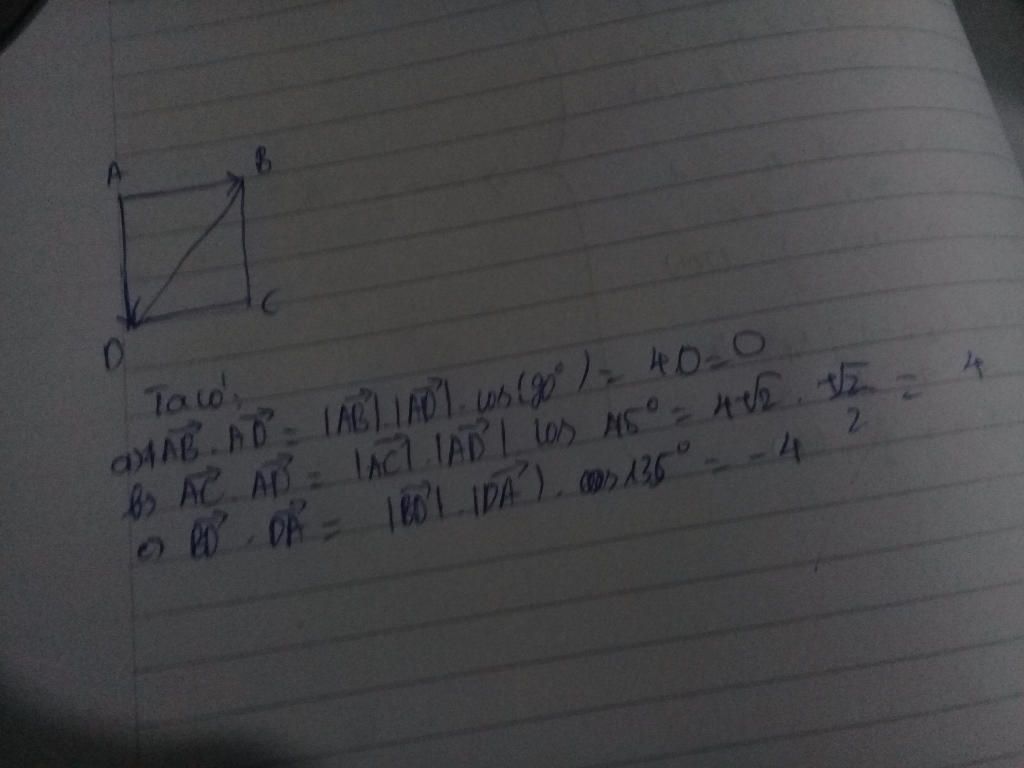 A B
D C
Ta có:
a) AB⃗ . AD⃗ = |AB⃗|.|AD⃗|. cos(90°) = 4.0 = 0
b) AC⃗ . AD⃗ = |AC⃗|.|AD⃗| cos 45° = 4√2 . √2/2 = 4
c) BD⃗ . DA⃗ = |BD⃗|.|DA⃗|. cos 135° = -4